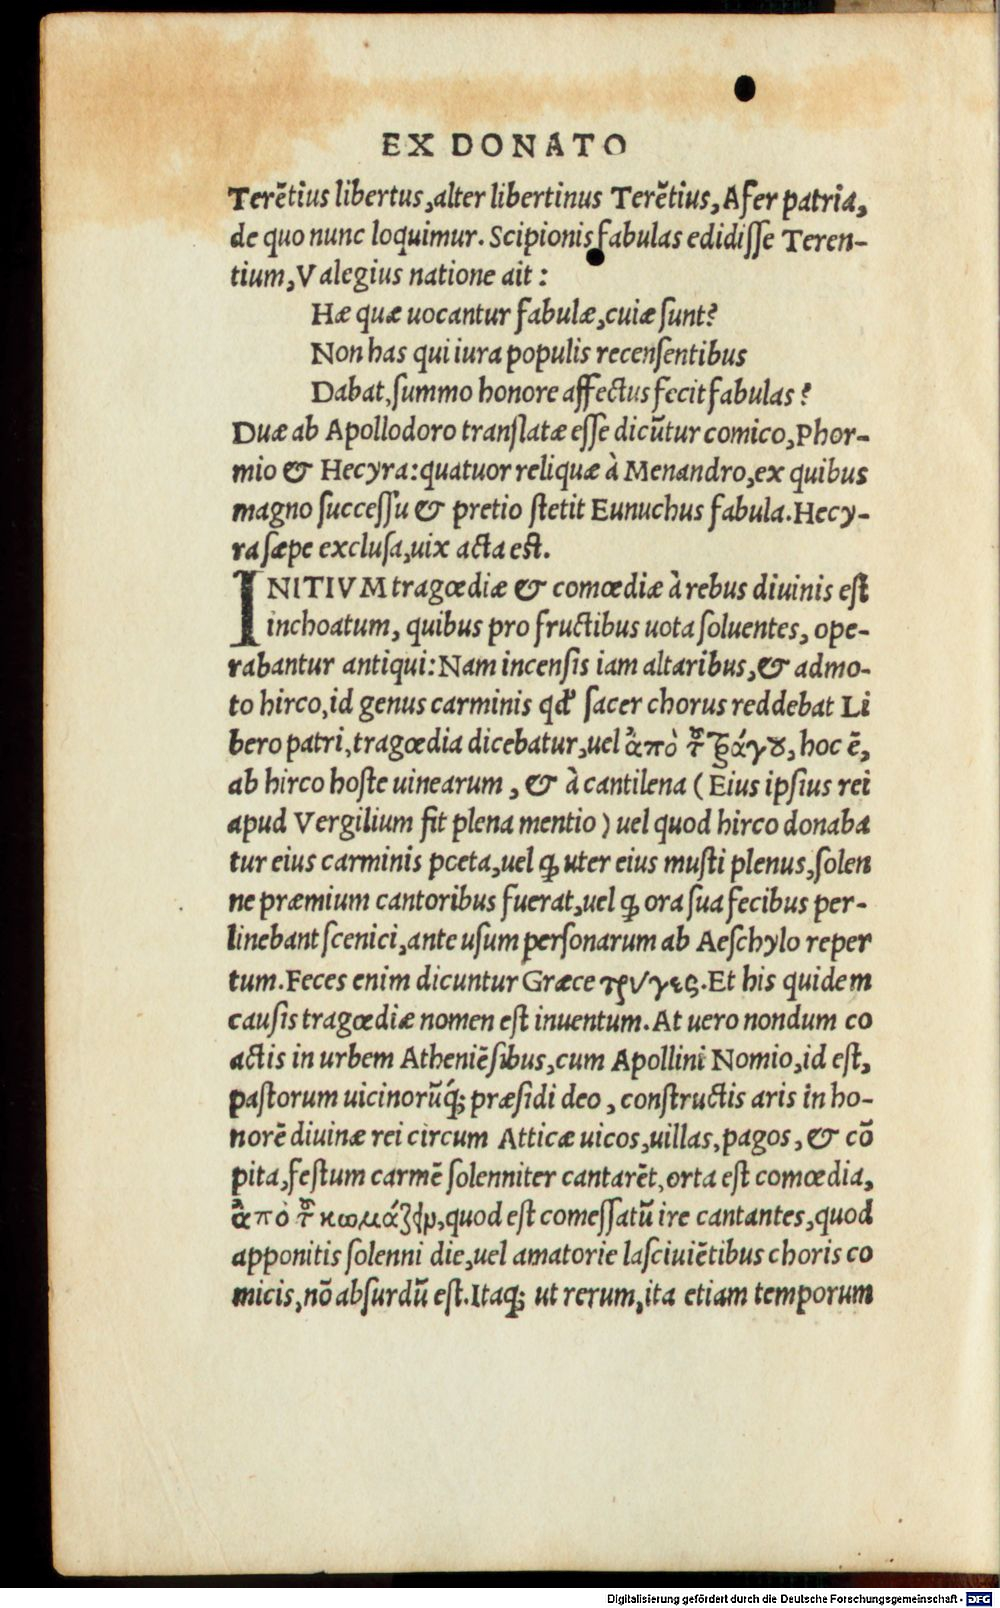 EX DONATO
Terẽtius libertus, alter libertinus Terẽtius, Afer patria,
de quo nunc loquimur. Scipionis fabulas edidiſſe Teren-
tium, Valegius natione ait:
Hæ quæ uocantur fabulæ, cuiæ ſunt?
Non has qui iura populis recenſentibus
Dabat, ſummo honore affectus fecit fabulas?
Duæ ab Apollodoro translatæ eſſe dicũtur comico, Phor-
mio & Hecyra: quatuor reliquæ à Menandro, ex quibus
magno ſucceſſu & pretio ſtetit Eunuchus fabula. Hecy-
ra ſæpe excluſa, uix acta eſt.
INITIVM tragœdiæ & comœdiæ à rebus diuinis eſt
inchoatum, quibus pro fructibus uota ſoluentes, ope-
rabantur antiqui: Nam incenſis iam altaribus, & admo-
to hirco, id genus carminis qď ſacer chorus reddebat Li
bero patri, tragœdia dicebatur, uel ἀπὸ τ͂ τράγȣ, hoc ẽ,
ab hirco hoſte uinearum, & à cantilena (Eius ipſius rei
apud Vergilium fit plena mentio) uel quod hirco donaba
tur eius carminis pœta, uel ꝙ uter eius muſti plenus, ſolen
ne præmium cantoribus fuerat, uel ꝙ ora ſua fecibus per-
linebant ſcenici, ante uſum perſonarum ab Aeſchylo reper
tum. Feces enim dicuntur Græce τρύγες. Et his quidem
cauſis tragœdiæ nomen eſt inuentum. At uero nondum co
actis in urbem Atheniẽſibus, cum Apollini Nomio, id eſt,
paſtorum uicinorũq́; præſidi deo, conſtructis aris in ho-
norẽ diuinæ rei circum Atticæ uicos, uillas, pagos, & cõ
pita, feſtum carmẽ ſolenniter cantarẽt, orta eſt comœdia,
ἀπὸ τ͂ κωμάζειν, quod eſt comeſſatũ ire cantantes, quod
apponitis ſolenni die, uel amatorie laſciuiẽtibus choris co
micis, nõ abſurdũ eſt. Itaq; ut rerum, ita etiam temporum
Digitalisierung gefördert durch die Deutsche Forschungsgemeinschaft - DFG